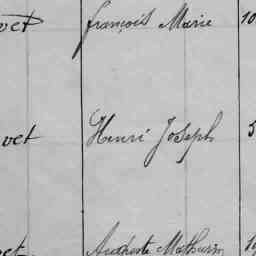 vet François Marie 10
vet Henri Joseph 5
vet Auguste Mathurin